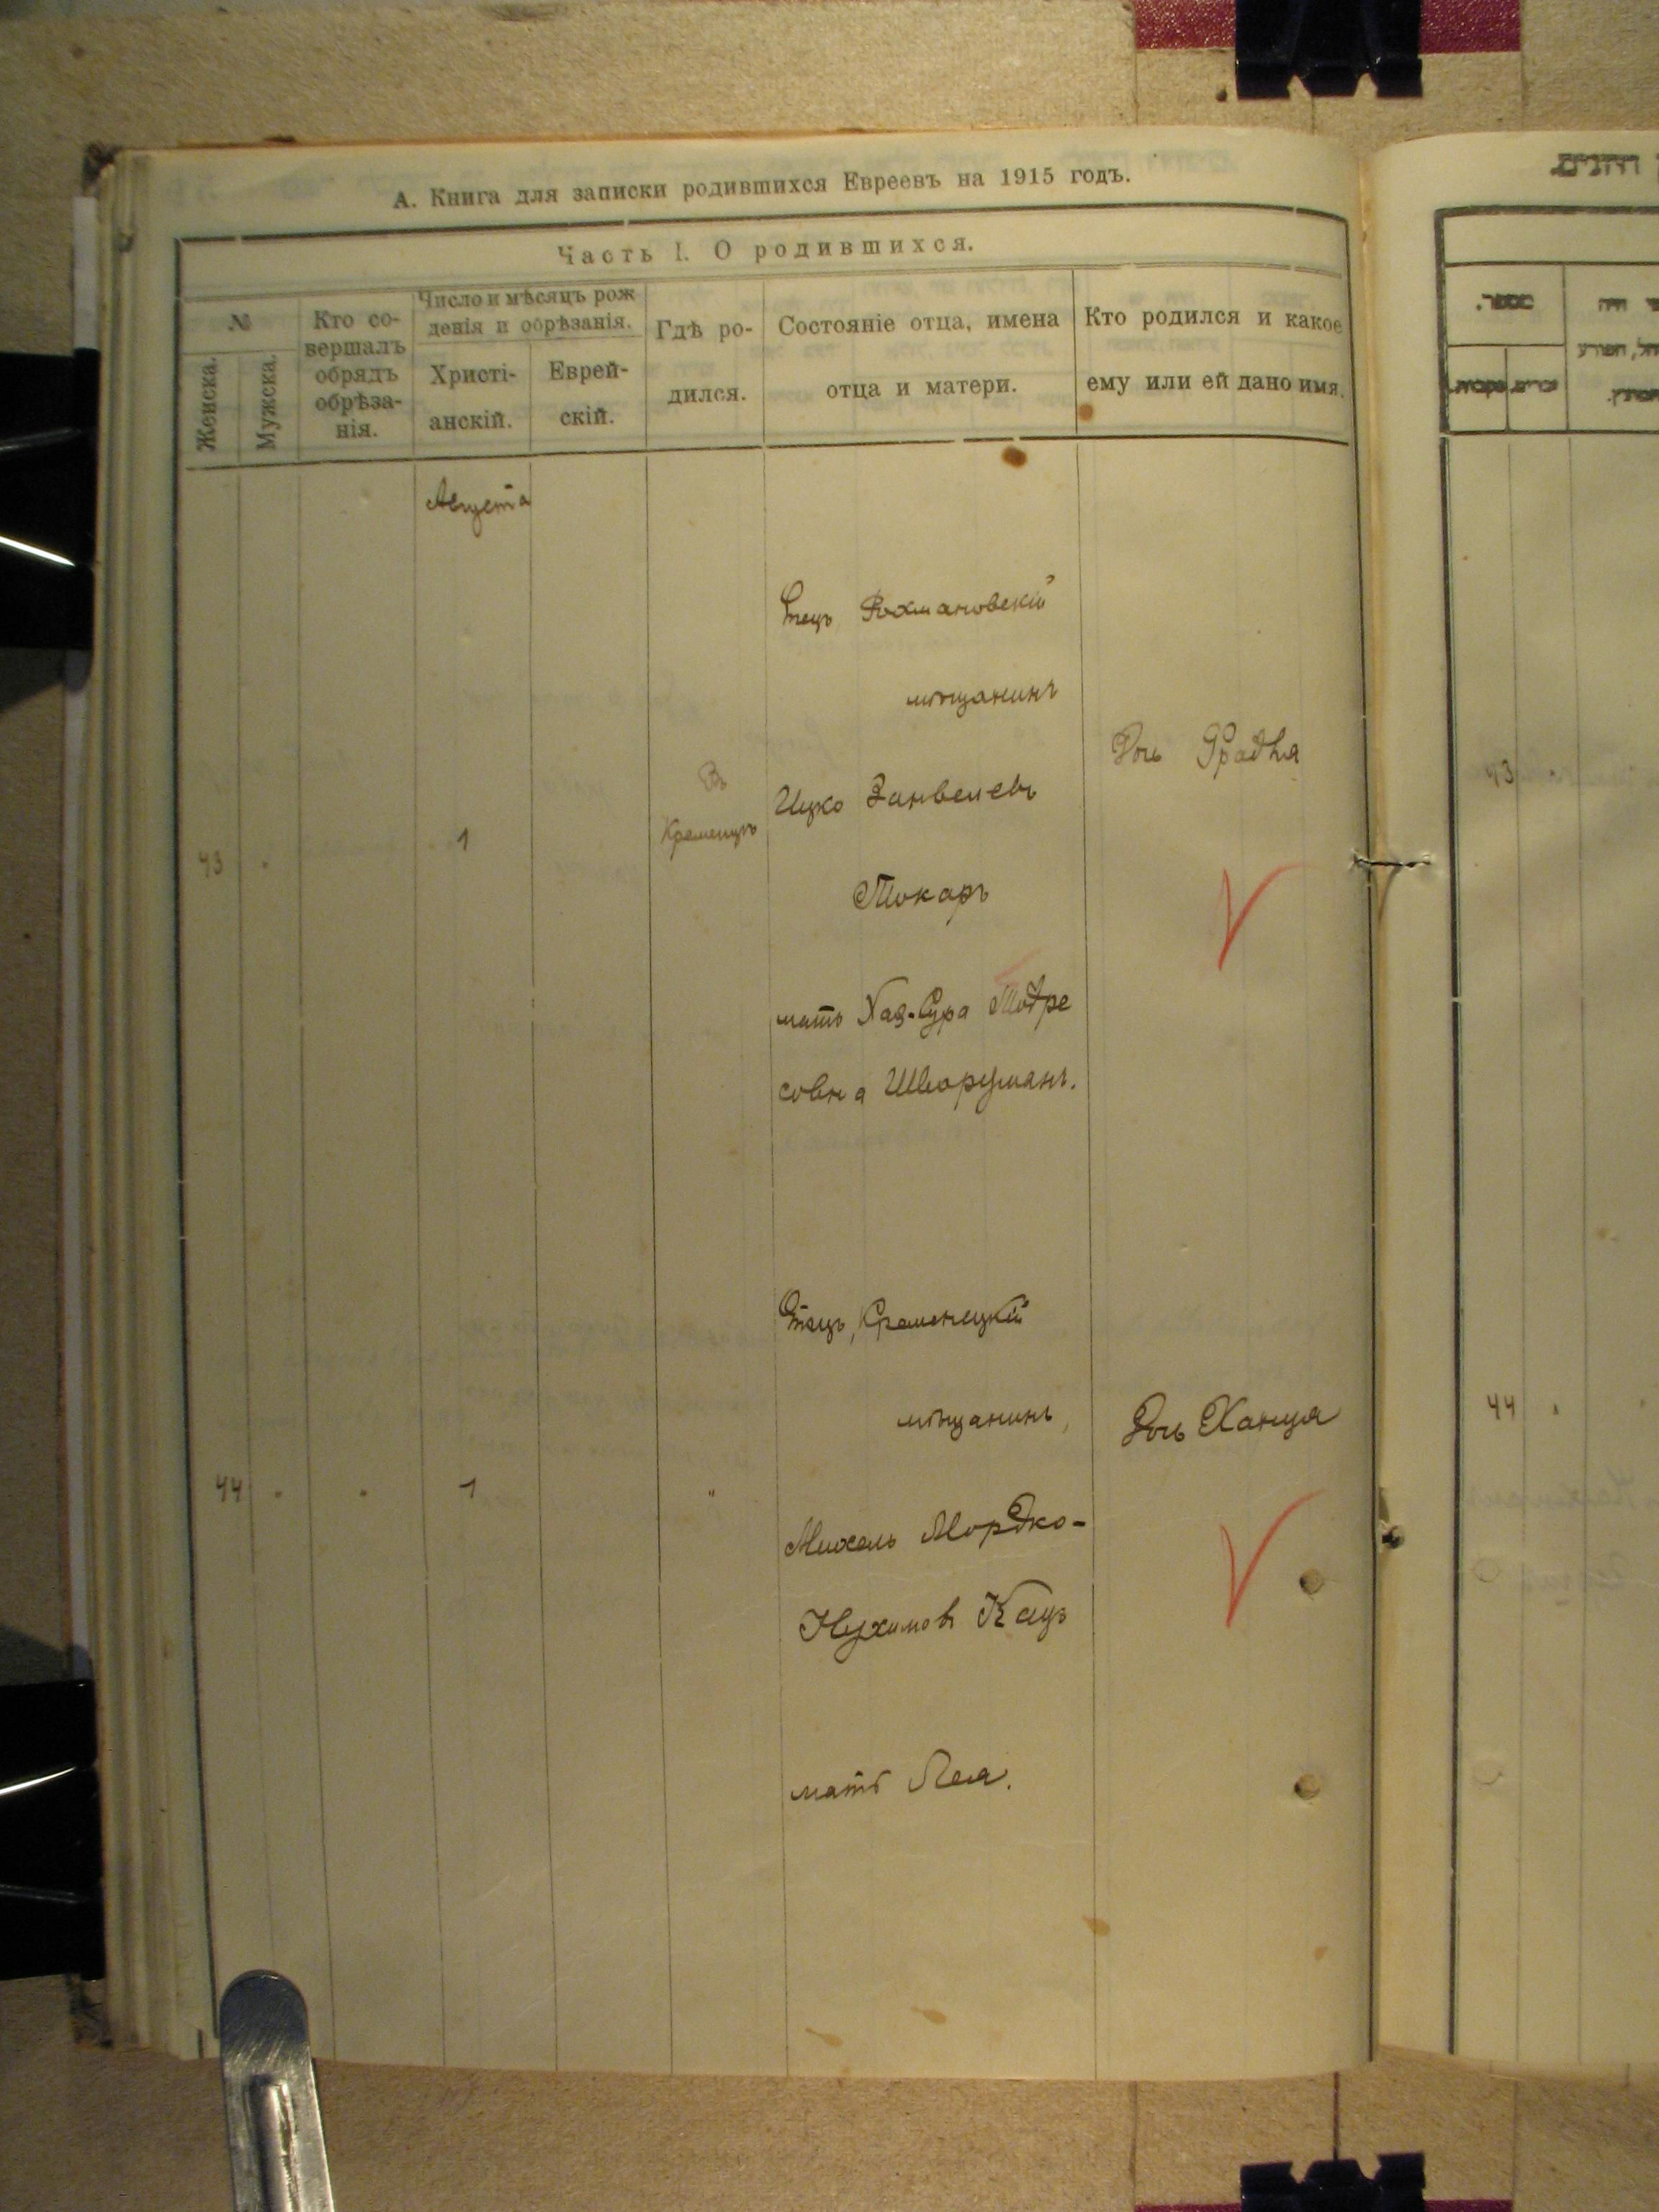 А. Книга для записки родившихся Евреевъ на 1915 годъ.
Часть I. О родившихся.
№
Женска.
Мужска.
Кто со-
вершалъ
обрядъ
обрѣза-
нія.
Число и мѣсяцъ рож
денія и обрѣзанія.
Христі-
анскій.
Еврей-
скій.
Гдѣ ро-
дился.
Состояніе отца, имена
отца и матери.
Кто родился и какое
ему или ей дано имя.
Августа
43
1
Въ
Кременцѣ
Отецъ Рохмановскій
мѣщанинъ
Ицко Занвелевъ
Токаръ
мать Хая-Сура Тодре
совна Шварцманъ.
Дочь Фрадля
44
1
"
Отецъ, Кременецкій
мѣщанинъ,
Михель Мордко-
Нухимовъ Кацъ
мать Лея.
Дочь Ханця
מספר.
43
44